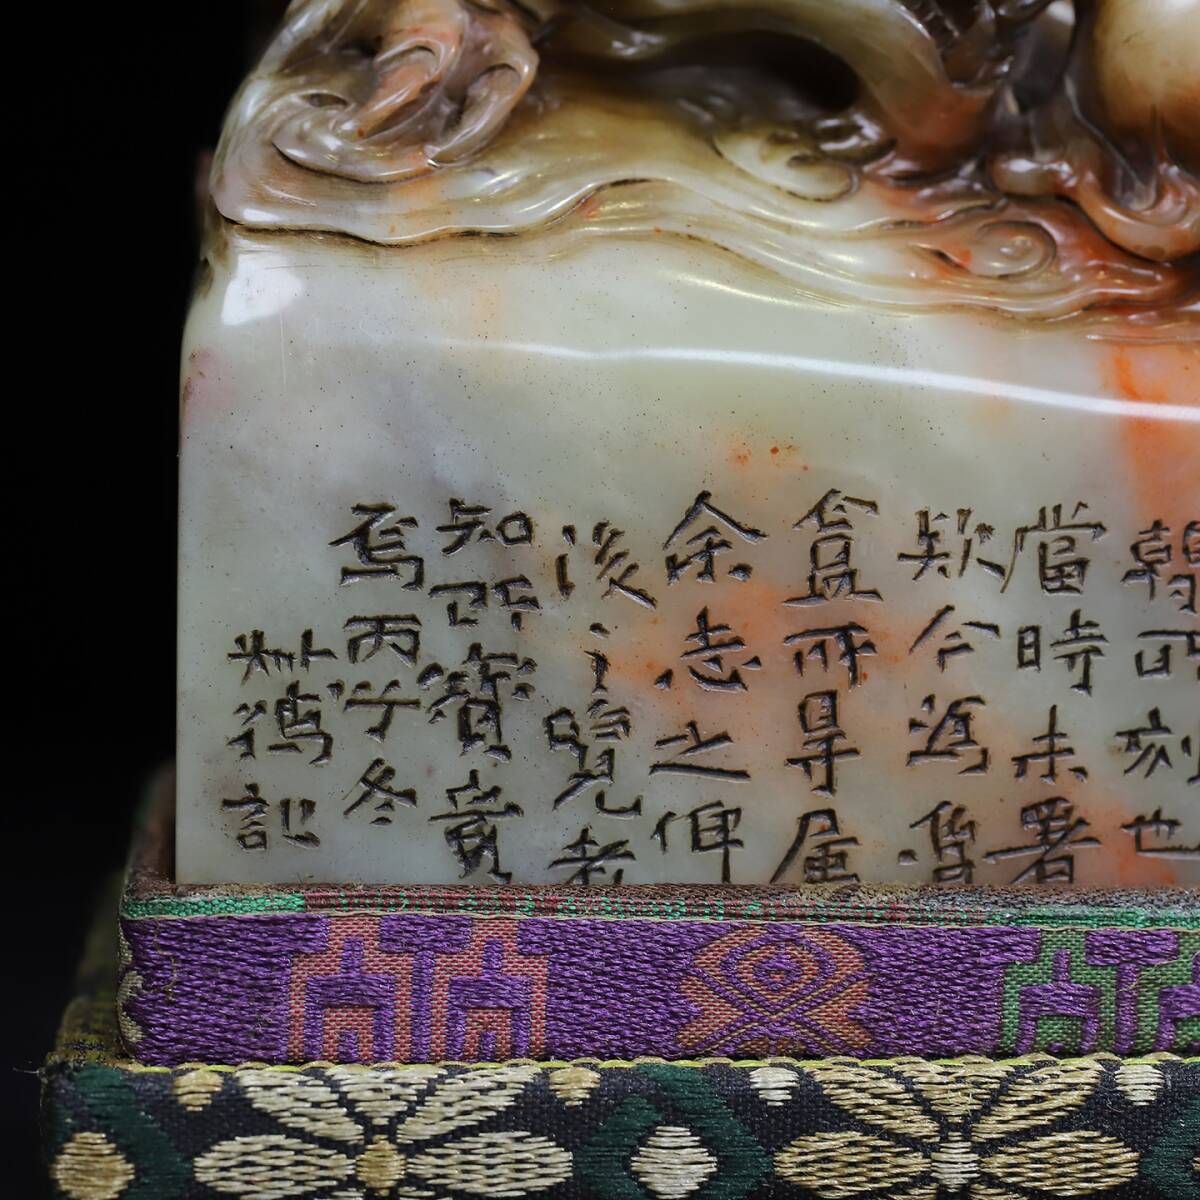 翰所刻也
當時未署
款今為
盒所得屬
余志之俾
後之覽者
知所寶貴
焉丙子冬
記